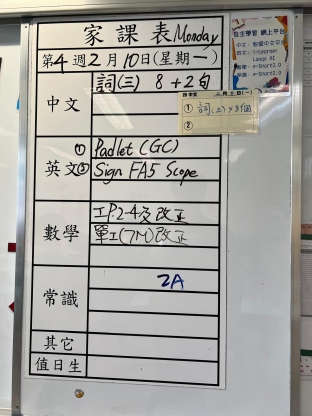 家課表 Monday
第4週2月10日(星期一)
中文
詞(三) 8+2句
① 詞(三)×8個
②
英文
① Padlet (GC)
② Sign FA5 Scope
數學
工P.2-4及改正
單工(7M)改正
常識
2A
其它
值日生
自主學習 網上平台